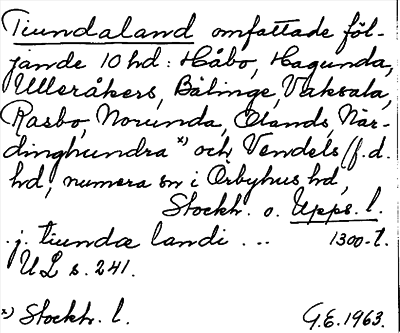 Tiundaland omfattade föl-
jande 10 hd: Håbo, Hagunda,
Ulleråkers, Bälinge, Vaksala,
Rasbo, Norunda, Olands, När-
dinghundra x) och Vendels (f.d.
hd, numera sn i Örbyhus hd,
Stockh. o. Upps. l.
j. tiundæ landi ... 1300-t.
UL s. 241.
x) Stockh. l. G.E. 1963.